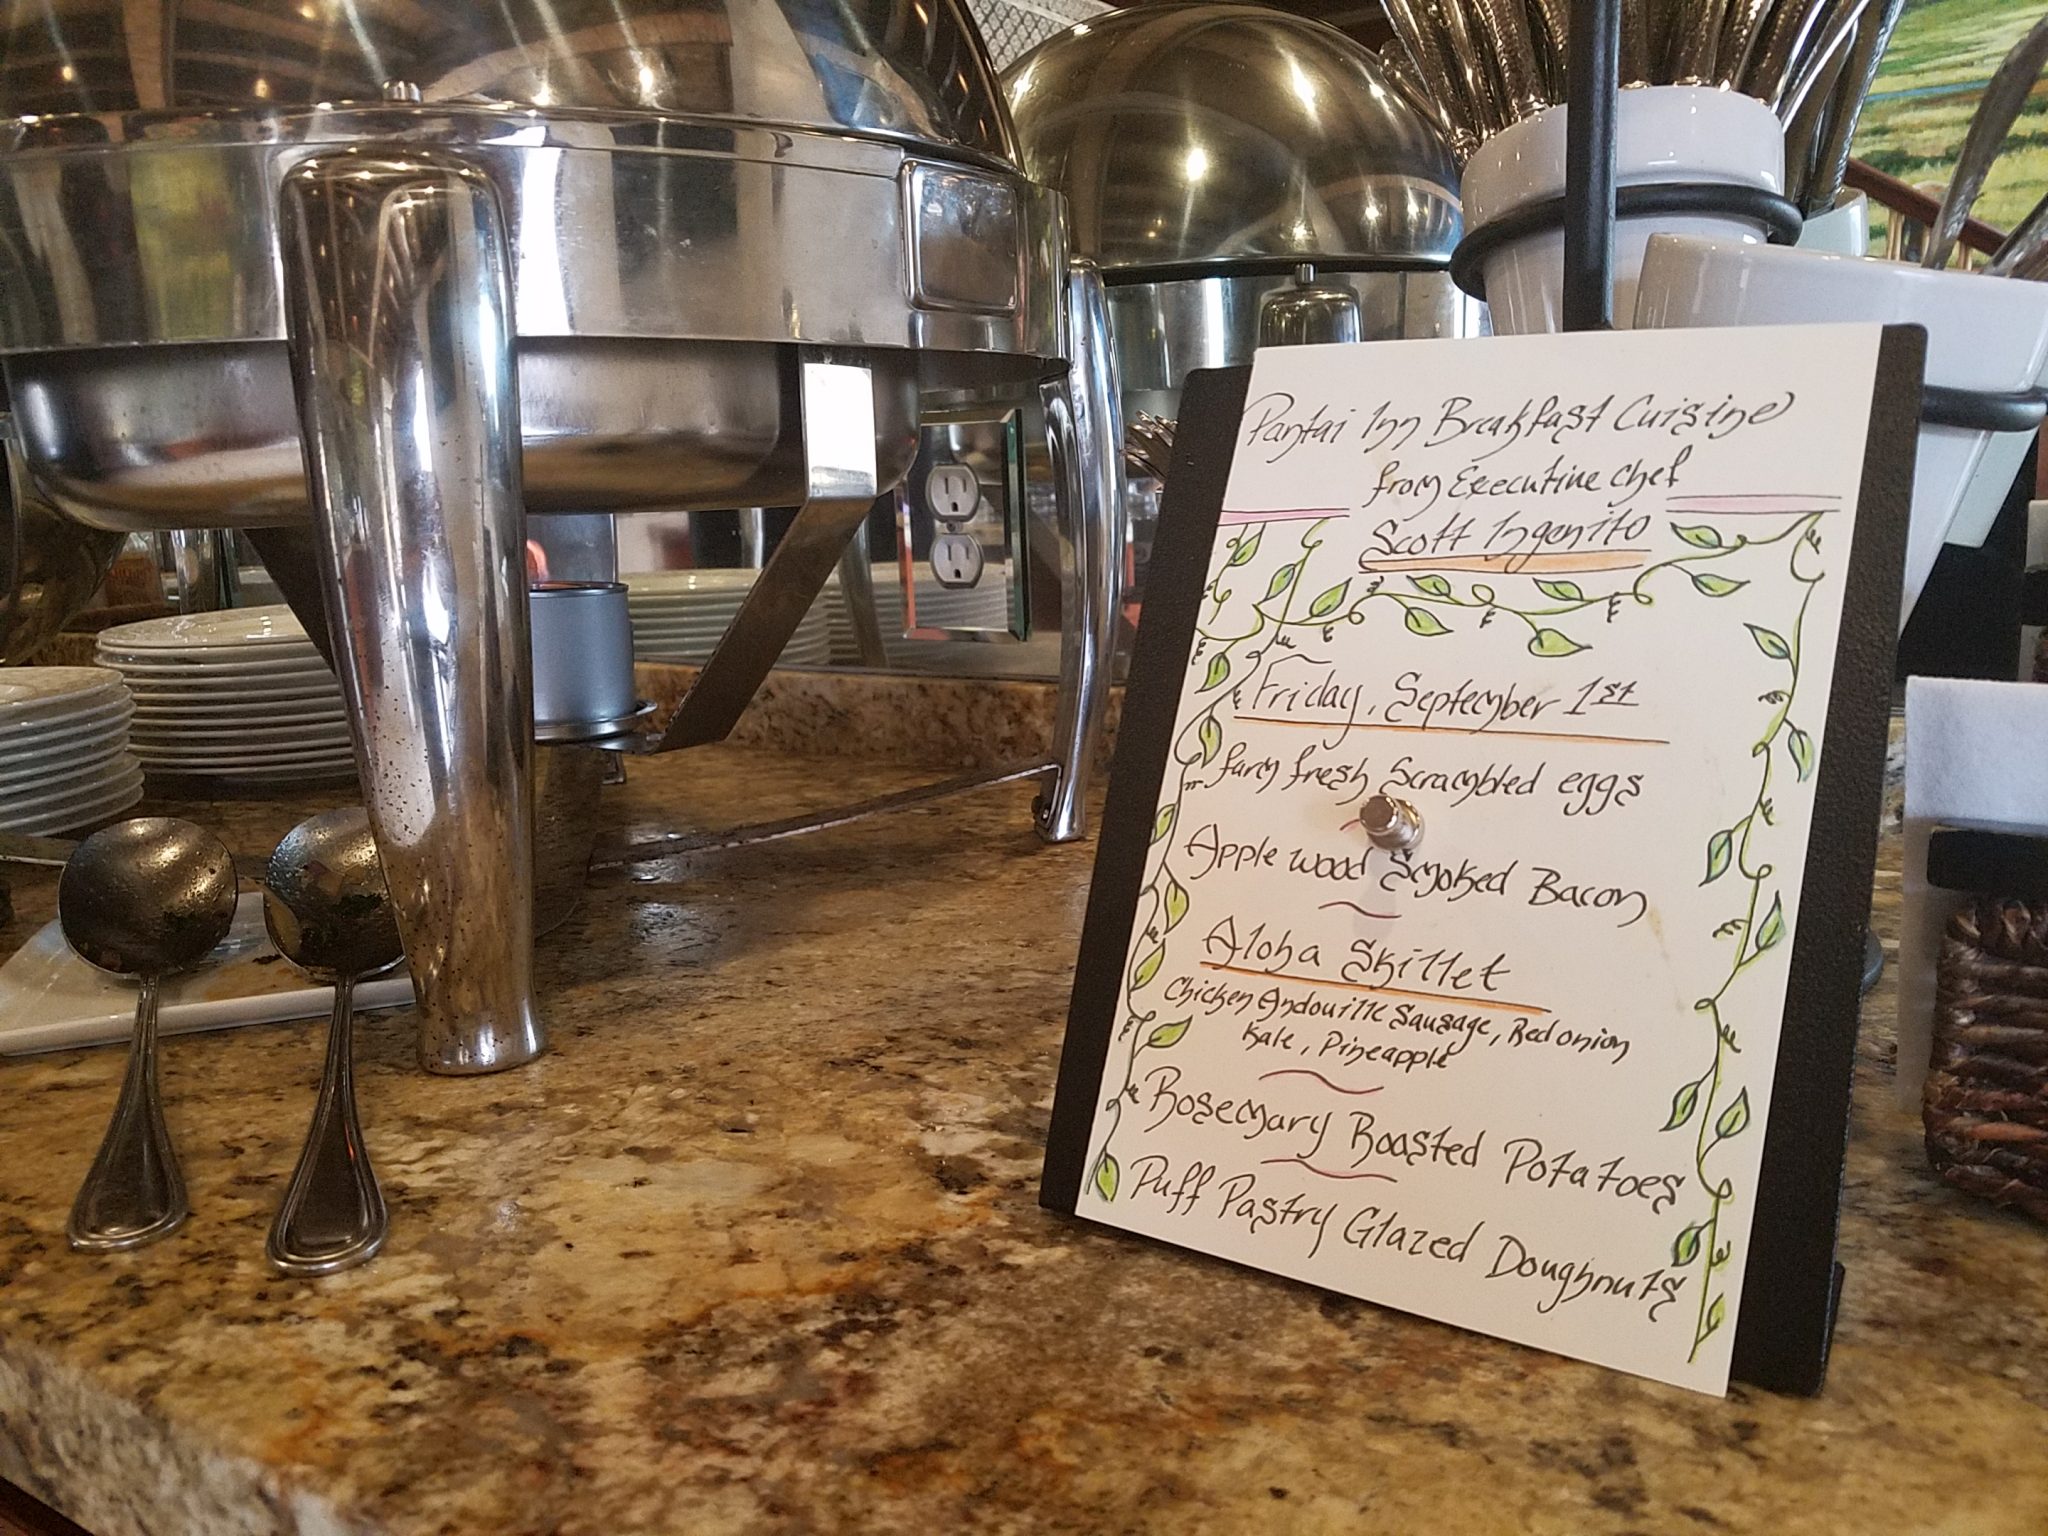 Pantai Inn Breakfast Cuisine
from Executive Chef
Scott Ingenito
Friday, September 1st
farm fresh Scrambled eggs
Apple wood Smoked Bacon
Aloha Skillet
Chicken Andouille Sausage, Red onion
Kale, Pineapple
Rosemary Roasted Potatoes
Puff Pastry Glazed Doughnuts